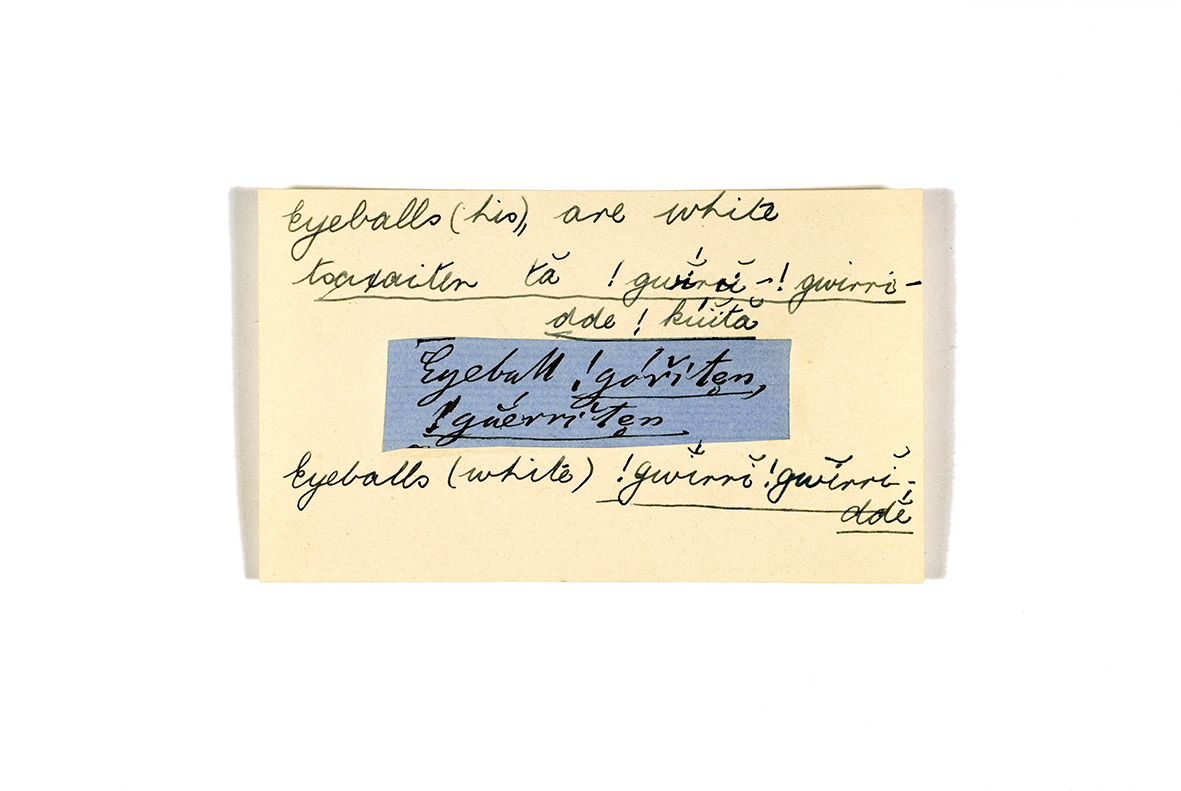 Eyeballs (his), are white
tsaxaiten tă !gwĭrrĭ-!gwirri-
dde !kŭĭtă
Eyeball !góřĭten̥,
!gŭérrĭten̥
Eyeballs (white) !gwĭrrĭ!gwĭrrĭ-
ddĕ